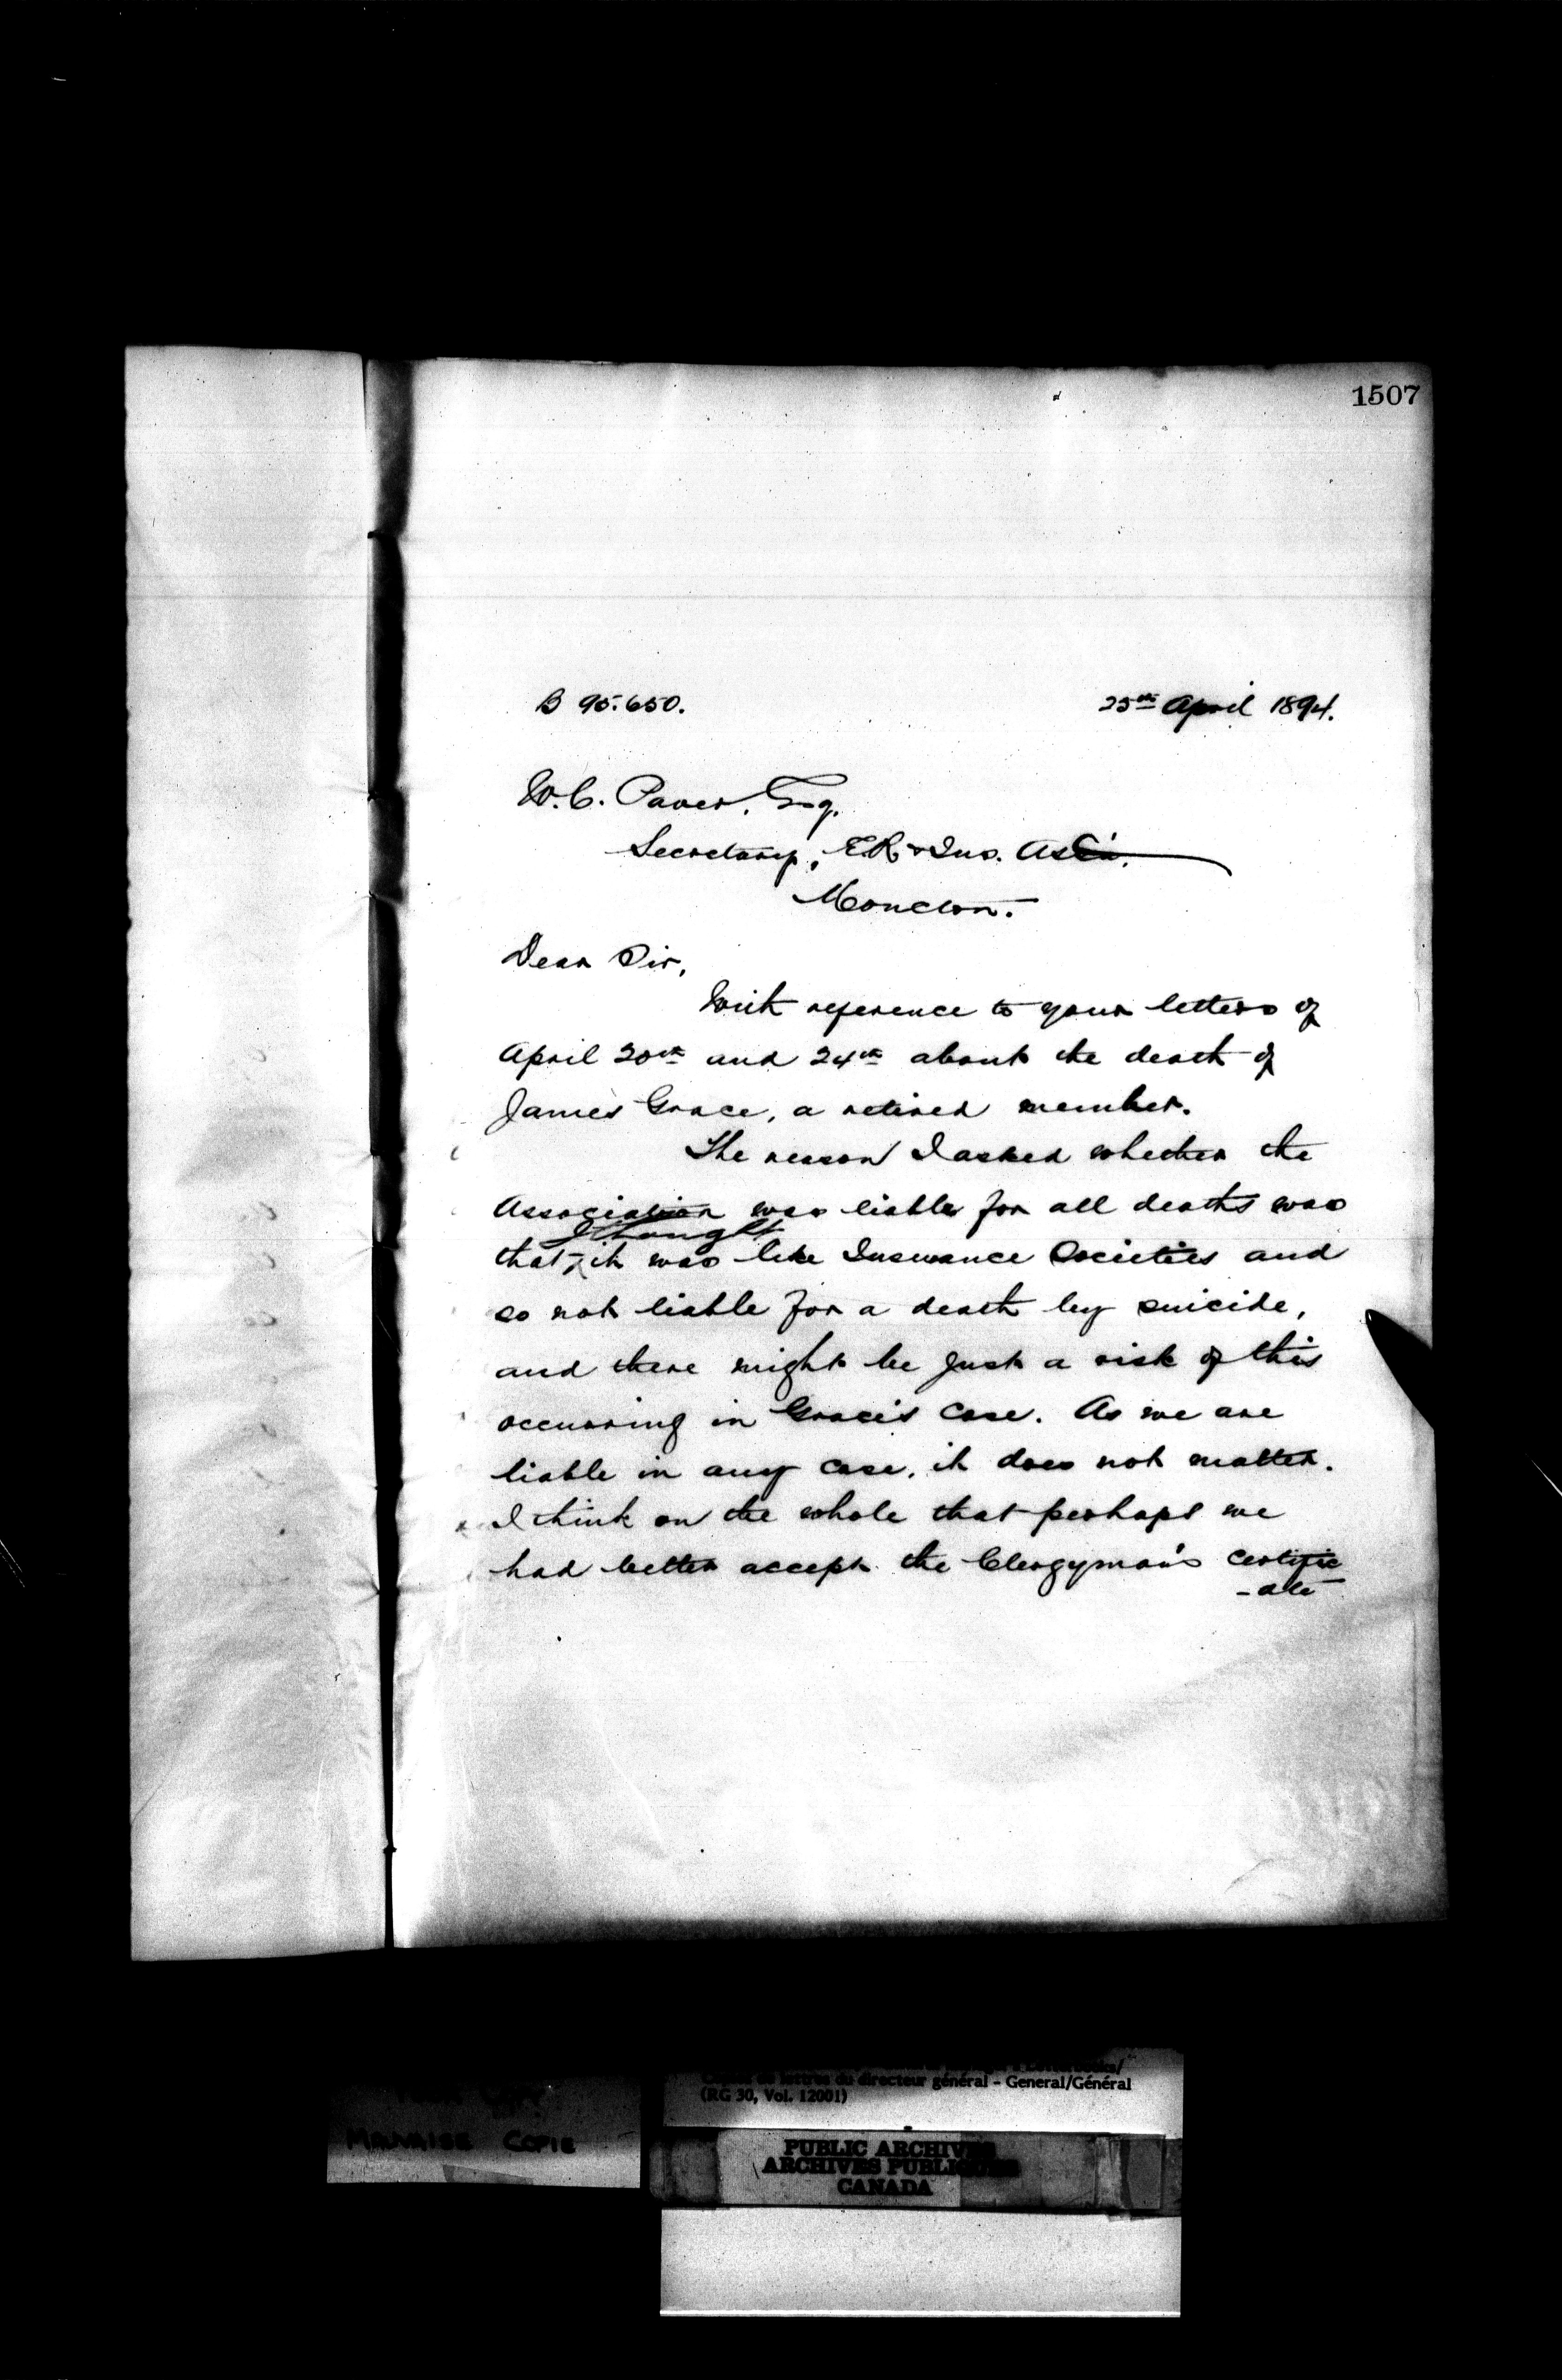 1507
B 95.650.
25th April 1894.
W.C. Paver, Esq.
Secretary, E.R. & Ins. Ass'n.
Moncton.
Dear Sir,
With reference to your letters of
April 20th and 24th about the death of
James Grace, a retired member.
The reason I asked whether the
Association was liable for all deaths was
I thought
that it was like Insurance Societies and
so not liable for a death by suicide,
and there might be just a risk of this
occurring in Grace's case. As we are
liable in any case, it does not matter.
I think on the whole that perhaps we
had better accept the Clergyman's certific
-ate
MAUVAISE COPIE
Copies de lettres du directeur général - General/Général
(RG 30, Vol. 12001)
PUBLIC ARCHIVES
ARCHIVES PUBLIQUES
CANADA